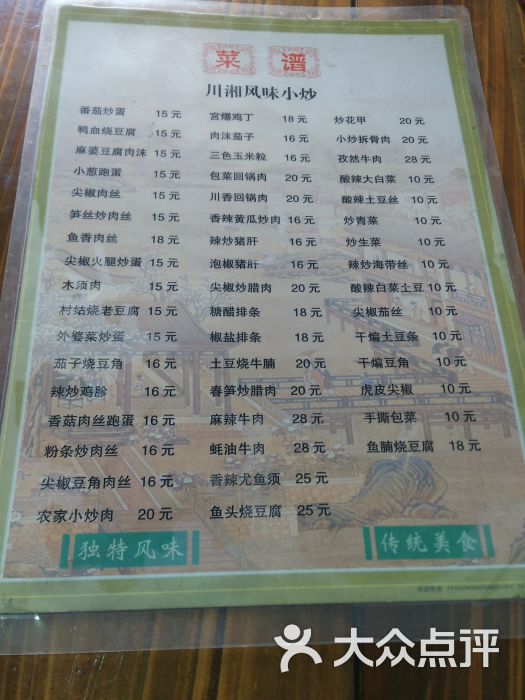 菜谱
川湘风味小炒
番茄炒蛋 15 元
鸭血烧豆腐 15 元
麻婆豆腐肉沫 15 元
小葱跑蛋 15 元
尖椒肉丝 15 元
笋丝炒肉丝 15 元
鱼香肉丝 18 元
尖椒火腿炒蛋 15 元
木须肉 15 元
村姑烧老豆腐 15 元
外婆菜炒蛋 15 元
茄子烧豆角 16 元
辣炒鸡胗 16 元
香菇肉丝跑蛋 16 元
粉条炒肉丝 16 元
尖椒豆角肉丝 16 元
农家小炒肉 20 元
宫爆鸡丁 18 元
肉沫茄子 16 元
三色玉米粒 16 元
包菜回锅肉 20 元
川香回锅肉 20 元
香辣黄瓜炒肉 16 元
辣炒猪肝 16 元
泡椒猪肝 16 元
尖椒炒腊肉 20 元
糖醋排条 18 元
椒盐排条 18 元
土豆烧牛腩 20 元
春笋炒腊肉 20 元
麻辣牛肉 28 元
蚝油牛肉 28 元
香辣尤鱼须 25 元
鱼头烧豆腐 25 元
炒花甲 20 元
小炒拆骨肉 20 元
孜然牛肉 28 元
酸辣大白菜 10 元
酸辣土豆丝 10 元
炒青菜 10 元
炒生菜 10 元
辣炒海带丝 10 元
酸辣白菜土豆 10 元
尖椒茄丝 10 元
干煸土豆条 10 元
干煸豆角 10 元
虎皮尖椒 10 元
手撕包菜 10 元
鱼腩烧豆腐 18 元
独特风味
传统美食
大众点评